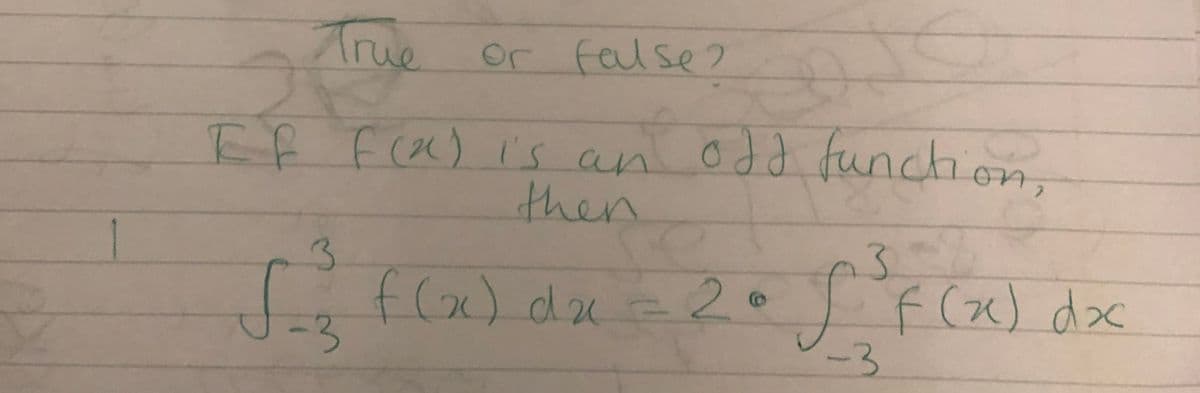 True or false?
If f(x) is an odd function,
then
∫₋₃³ f(x) dx = 2 • ∫₋₃³ f(x) dx